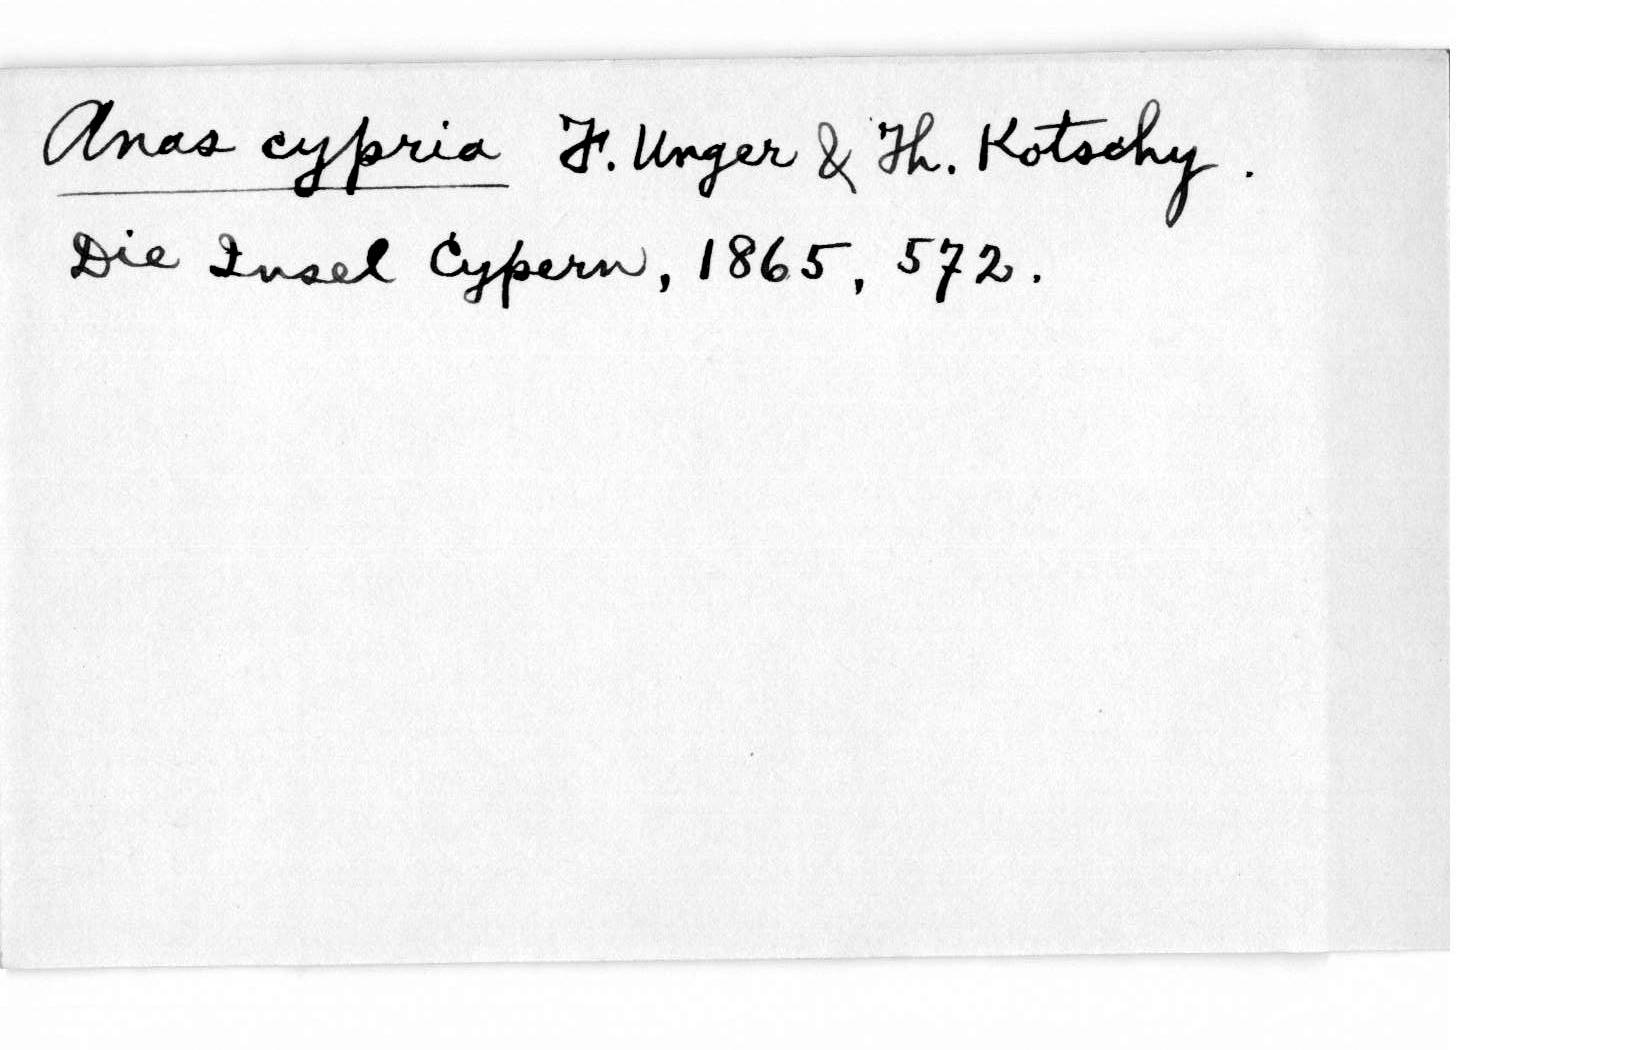 Anas cypria F. Unger & Th. Kotschy.
Die Insel Cypern, 1865, 572.